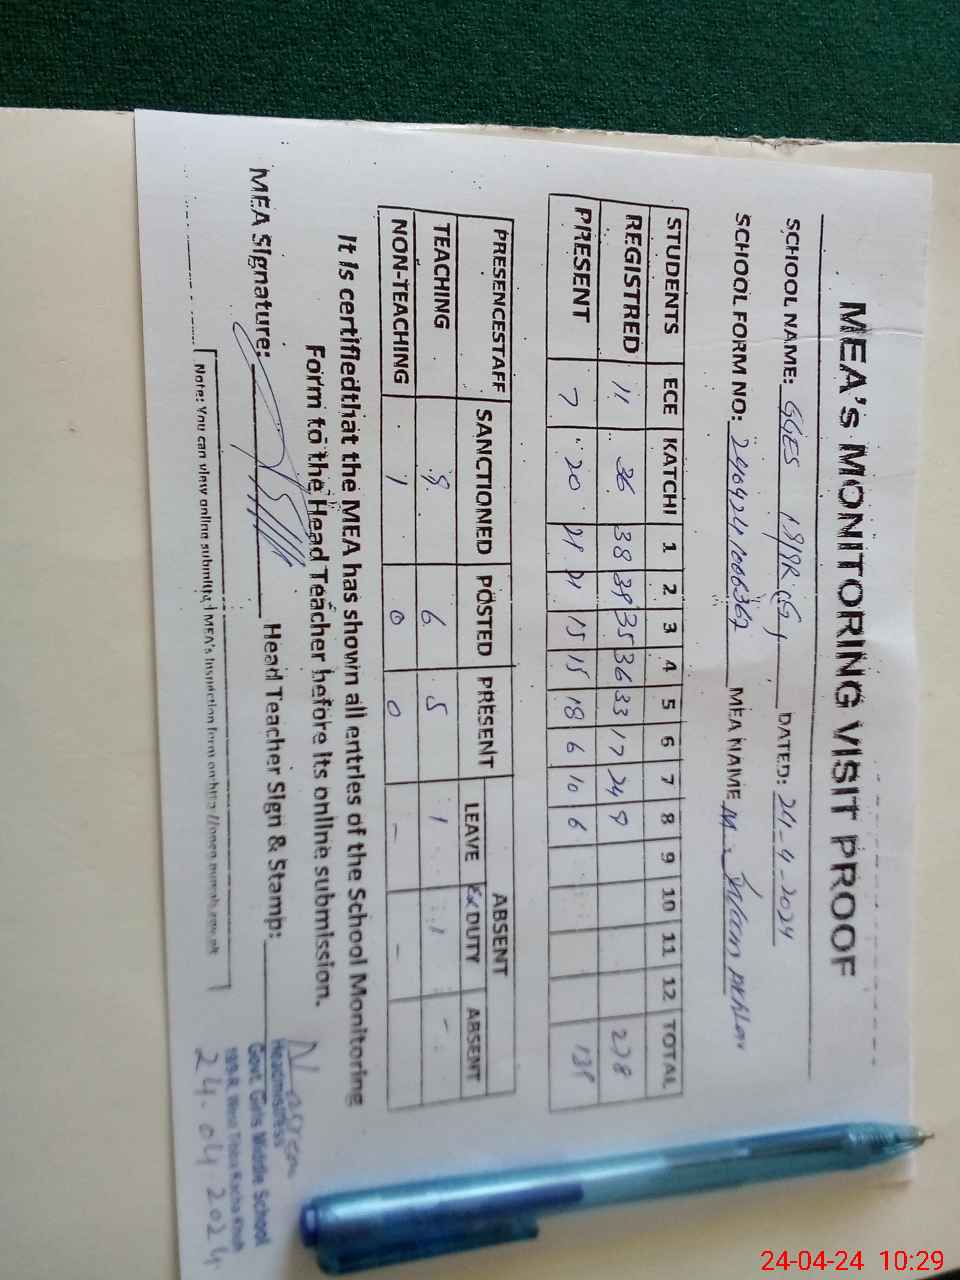 MEA's MONITORING VISIT PROOF
SCHOOL NAME: GGES 199R (G) DATED: 24-4-2024
SCHOOL FORM NO: MEA NAME M. Akhtar
STUDENTS ECE KATCHI 1 2 3 4 5 6 7 8 9 10 11 12 TOTAL
REGISTRED 11 36 38 39 35 36 33 17 24 9 278
PRESENT 7 20 21 21 15 15 18 6 10 6 139
PRESENCESTAFF SANCTIONED POSTED PRESENT ABSENT
LEAVE Ex DUTY ABSENT
TEACHING 9 6 5 1 1 -
NON-TEACHING 1 0 0 - -
It is certifiedthat the MEA has shown all entries of the School Monitoring
Form to the Head Teacher before its online submission.
MEA Signature: Head Teacher Sign & Stamp:
Headmistress
Govt. Girls Middle School
24.04.2024
Note: You can view online submitted MEA's Inspection form on:
24-04-24 10:29